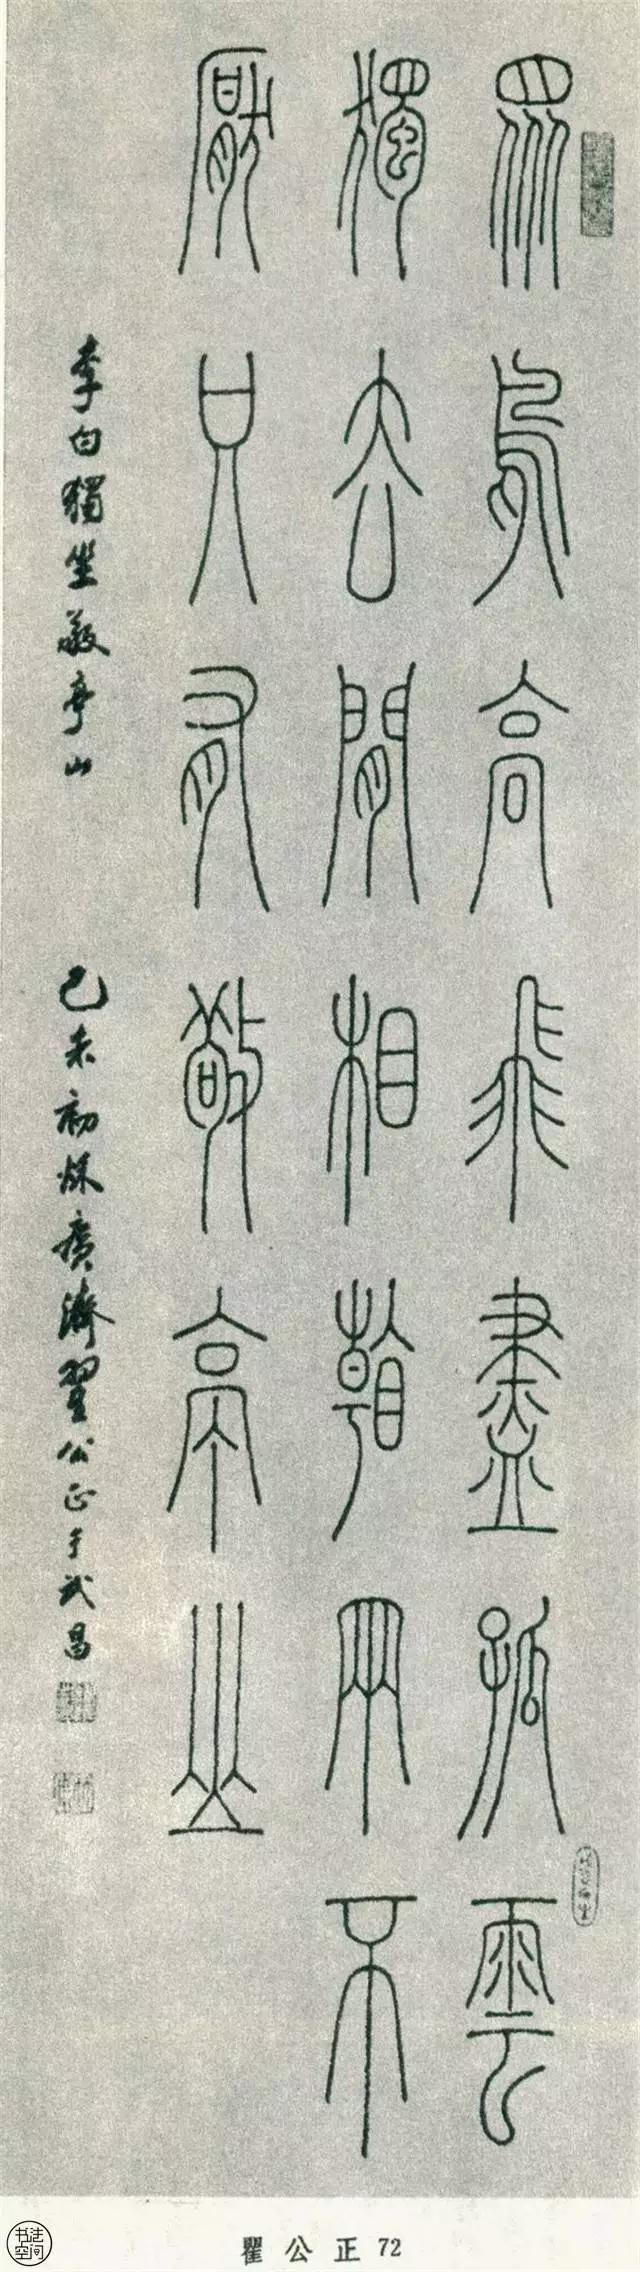 眾鳥高飛盡孤雲
獨去閒相看兩不
厭只有敬亭山
李白獨坐敬亭山
己未初秌廣濟翟公正于武昌
瞿公正 72
书法空间